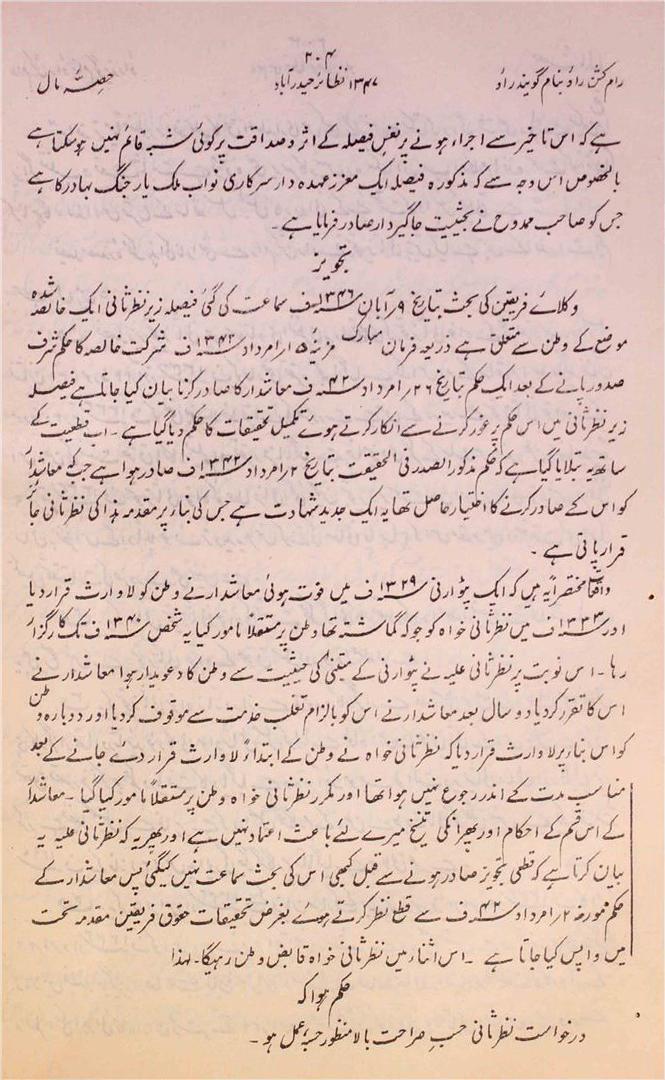 ۲۰۴
رام کشن راؤ بنام گویندراؤ ۱۳۴۷ نظائر حیدرآباد حصۂ مال
ہے کہ اس تاخیر سے اجراء ہونے پر نفس فیصلہ کے اثر و صداقت پر کوئی شبہ قائم نہیں ہوسکتا ہے
بالخصوص اس وجہ سے کہ مذکورہ فیصلہ ایک معزز عہدہ دار سرکاری نواب ملک یار جنگ بہادر کا ہے
جس کو صاحب ممدوح نے بحیثیت جاگیردار صادر فرمایا ہے۔
تجویز
وکلائے فریقین کی بحث بتاریخ ۹ر آبان ۱۳۴۶ف سماعت کی گئی فیصلہ زیر نظر ثانی ایک خالصہ شدہ
موضع کے وطن سے متعلق ہے ذریعہ فرمان مبارک مزینہ ۱۵ر امرداد ۱۳۴۲ف شرکت خالصہ کا حکم شرف
صدور پانے کے بعد ایک حکم بتاریخ ۲۶ر امرداد ۴۲ف معاشدار کا صادر کرنا بیان کیا جاتا ہے فیصلہ
زیر نظر ثانی میں اس حکم پر غور کرنے سے انکار کرتے ہوئے تکمیل تحقیقات کا حکم دیا گیا ہے۔ اب قطعیت کے
ساتھ یہ بتلایا گیا ہے کہ حکم مذکور الصدر فی الحقیقت بتاریخ ۲ر امرداد ۱۳۴۲ف صادر ہوا ہے جب کہ معاشدار
کو اس کے صادر کرنے کا اختیار حاصل تھا یہ ایک جدید شہادت ہے جس کی بناء پر مقدمہ ہذا کی نظر ثانی جائز
قرار پاتی ہے۔
واقعات مختصراً یہ ہیں کہ ایک پٹوارنی ۱۳۲۹ف میں فوت ہوئی معاشدار نے وطن کو لاوارث قرار دیا
اور ۱۳۳۳ف میں نظر ثانی خواہ کو جو کہ گماشتہ تھا وطن پر مستقلاً مامور کیا یہ شخص ۱۳۴۰ف تک کارگزار
رہا۔ اس نوبت پر نظر ثانی علیہ نے پٹوارنی کے متبنیٰ کی حیثیت سے وطن کا دعویدار ہوا معاشدار نے
اس کا تقرر کر دیا دو سال بعد معاشدار نے اس کو بالزام تغلب خدمت سے موقوف کر دیا اور دوبارہ وطن
کو اس بناء پر لاوارث قرار دیا کہ نظر ثانی خواہ نے وطن کے ابتداءً لاوارث قرار دئے جانے کے بعد
مناسب مدت کے اندر رجوع نہیں ہوا تھا اور مکرر نظر ثانی خواہ وطن پر مستقلاً مامور کیا گیا۔ معاشدار
کے اس قسم کے احکام اور پھر انکی تنسیخ میرے لئے باعث اعتماد نہیں ہے اور پھر یہ کہ نظر ثانی علیہ یہ
بیان کرتا ہے کہ قطعی تجویز صادر ہونے سے قبل کبھی اس کی بحث سماعت نہیں کیگئی پس معاشدار کے
حکم مورخہ ۲ر امرداد ۴۲ف سے قطع نظر کرتے ہوئے بغرض تحقیقات حقوق فریقین مقدمہ تحت
میں واپس کیا جاتا ہے۔ اس اثنار میں نظر ثانی خواہ قابض وطن رہیگا۔ لہذا
حکم ہوا کہ
درخواست نظر ثانی حسب صراحت بالا منظور حسبہ عمل ہو۔